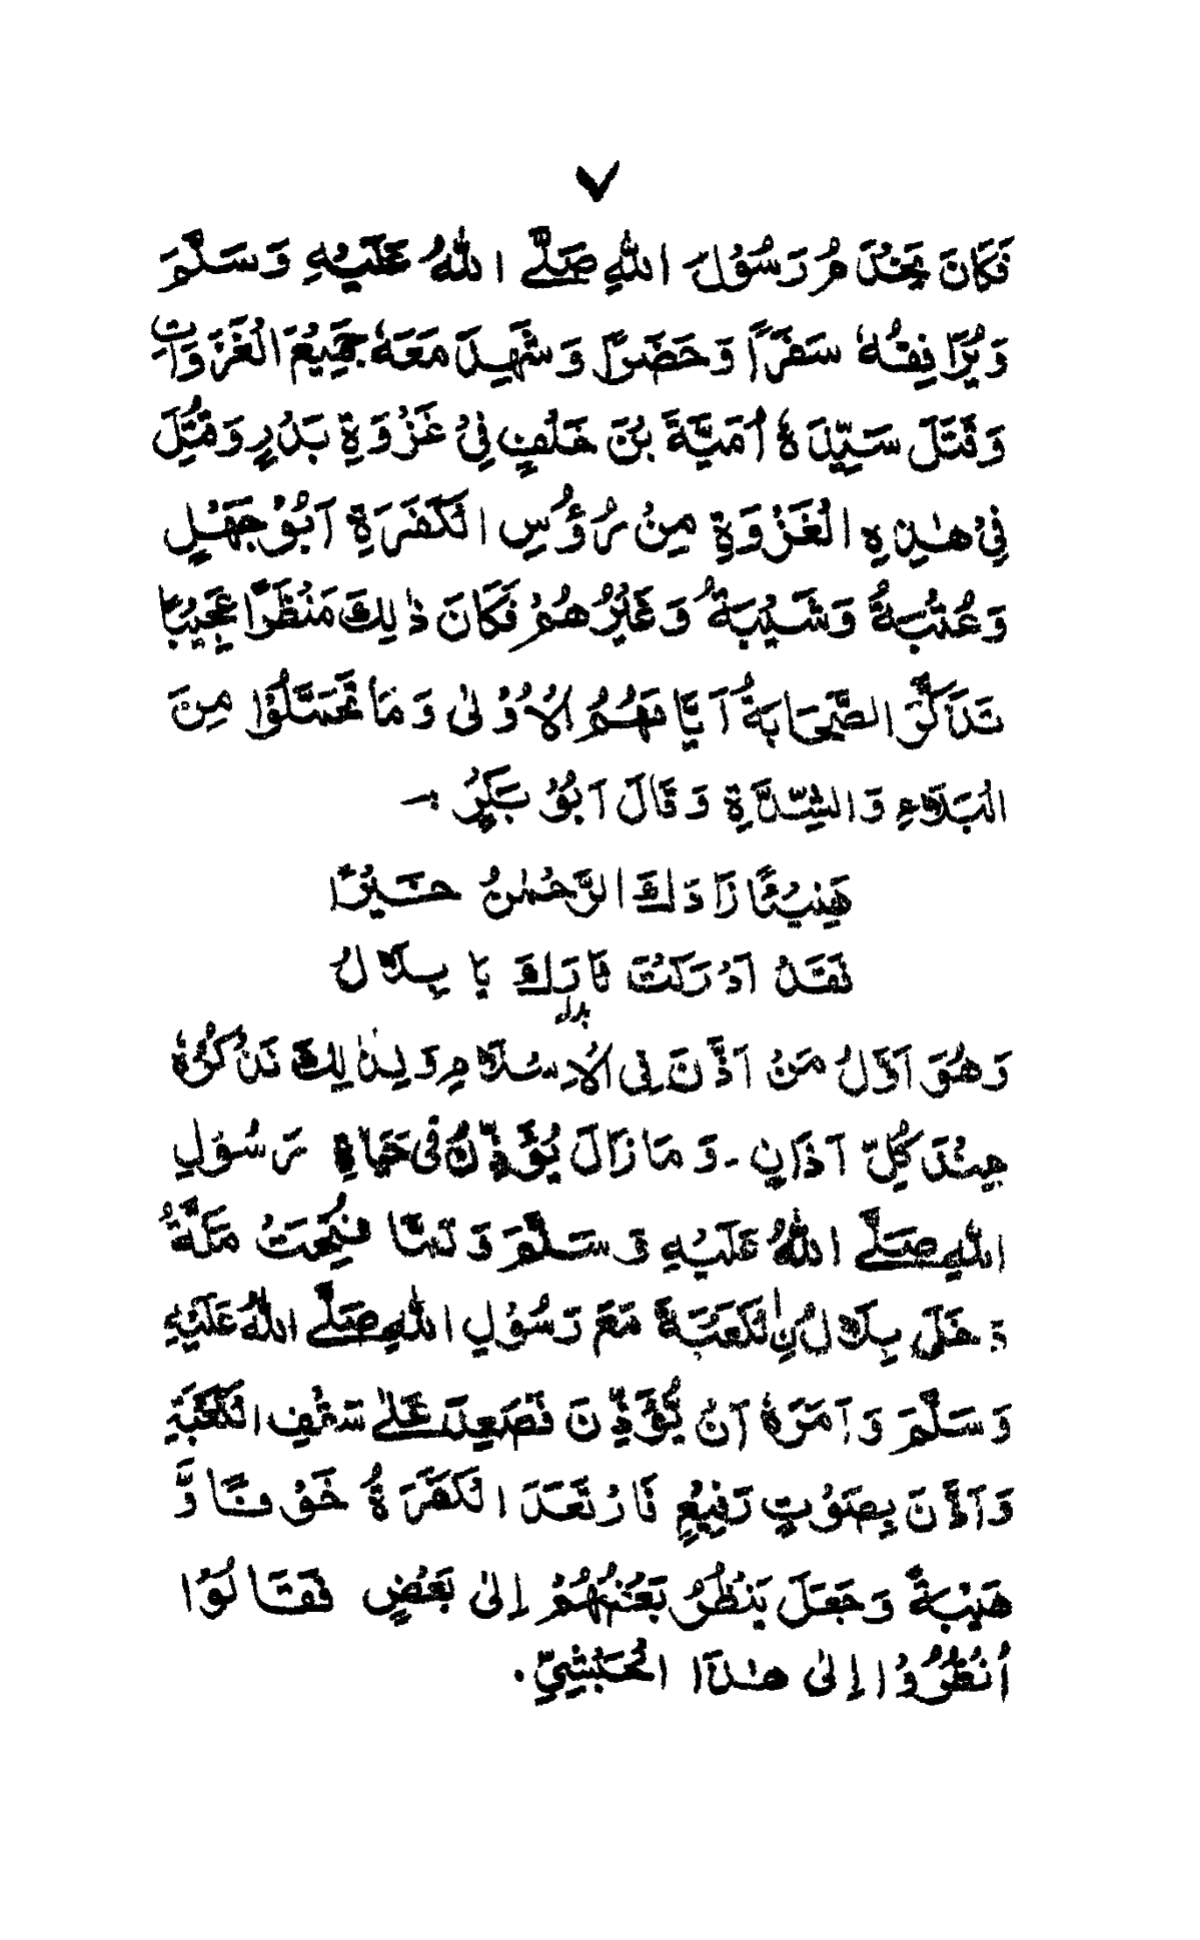 ٧
فَكَانَ يَخْدَمُ رَسُوْلَ اللّٰهِ صَلَّے اللّٰهُ عَلَيْهِ وَسَلَّمَ
وَيُرَافِقُهٗ سَفَرًا وَحَضَرًا وَشَهِدَ مَعَهٗ جَمِيْعَ الْغَزَوَاتِ
وَقَتَلَ سَيِّدَهٗ اُمَيَّةَ بْنَ خَلْفٍ فِيْ غَزْوَةِ بَدْرٍ وَقُتِلَ
فِيْ هٰذِهِ الْغَزْوَةِ مِنْ رُؤُسِ الْكَفَرَةِ اَبُوْجَهْلٍ
وَعُتْبَةُ وَشَيْبَةُ وَغَيْرُهُمْ فَكَانَ ذٰلِكَ مَنْظَرًا عَجِيْبًا
تَذَكَّرَ الصَّحَابَةُ اَيَّامَهُمُ الْاُوْلٰى وَمَا تَحَمَّلُوْا مِنَ
الْبَلَاءِ وَالشِّدَّةِ وَقَالَ اَبُوْ بَكْرٍ :ـ
هَنِيْئًا زَادَكَ الرَّحْمٰنُ خَيْرًا
فَقَدْ اَدْرَكْتَ ثَارَكَ يَا بِلَالُ
بدلہ
وَهُوَ اَوَّلُ مَنْ اَذَّنَ فِي الْاِسْلَامِ وَلِذٰلِكَ نَذْكُرُهٗ
عِنْدَ كُلِّ اَذَانٍ ـ وَمَا زَالَ يُؤَذِّنُ فِى حَيَاةِ رَسُوْلِ
اللّٰهِ صَلَّے اللّٰهُ عَلَيْهِ وَسَلَّمَ وَلَمَّا فُتِحَتْ مَكَّةُ
دَخَلَ بِلَالُ نِالْكَعْبَةَ مَعَ رَسُوْلِ اللّٰهِ صَلَّے اللّٰهُ عَلَيْهِ
وَسَلَّمَ وَاَمَرَهٗ اَنْ يُّؤَذِّنَ فَصَعِدَ عَلٰے سَقْفِ الْكَعْبَةِ
وَاَذَّنَ بِصَوْتٍ رَفِيْعٍ فَارْتَعَدَ الْكَفَرَةُ خَوْفًا وَّ
هَيْبَةً وَجَعَلَ يَنْظُرُ بَعْضُهُمْ اِلٰى بَعْضٍ فَقَالُوْا
اُنْظُرُوْا اِلٰى هٰذَا الْحَبْشِيِّ.